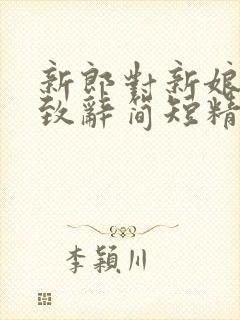 新郎對新娘
致辭简短精
李穎川